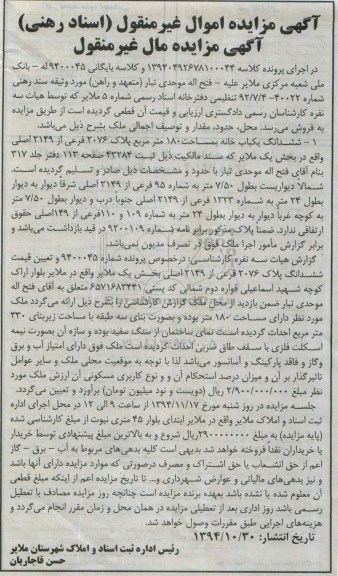 آگهی مزایده اموال غیرمنقول (اسناد رهنی)
آگهی مزایده مال غیرمنقول
در اجرای پرونده کلاسه ۱۳۹۴۰۴۹۲۶۷۸۱۰۰۰۴۴ و کلاسه بایگانی ۹۴۰۰۰۴۵ له – بانک
ملی شعبه مرکزی ملایر علیه – فتح اله موحدی تبار (متعهد و راهن) مورد وثیقه سند رهنی
شماره ۴۰۰۲۲–۹۲/۷/۴ تنظیمی دفترخانه اسناد رسمی شماره ۵ ملایر که توسط هیات سه
نفره کارشناسان رسمی دادگستری ارزیابی و قیمت آن قطعی گردیده است از طریق مزایده
به فروش می‌رسد. محل، حدود، مقدار و توصیف اجمالی ملک بشرح ذیل می‌باشد.
۱ – ششدانگ یکباب خانه بمساحت ۱۸۰ متر مربع پلاک ۲۰۷۶ فرعی از ۲۱۴۹ اصلی
واقع در بخش یک ملایر که سند مالکیت ذیل ثبت ۴۳۲۸۴ صفحه ۱۱۳ دفتر جلد ۳۱۷
بنام آقای فتح اله موحدی تبار با حدود و مشخصات ذیل صادر و تسلیم گردیده است.
شمالا دیواریست بطول ۷/۵۰ متر به شماره ۹۵ فرعی از ۲۱۴۹ اصلی شرقا دیوار به دیوار
بطول ۲۴ متر به شماره ۱۳۲۳ فرعی از ۲۱۴۹ اصلی جنوبا درب و دیوار بطول ۷/۵۰ متر
به کوچه غربا دیوار به دیوار بطول ۲۴ متر به شماره ۱۰۹ و ۱۱۰ فرعی از ۱۴۹ اصلی حقوق
ارتفاقی ندارد. ضمنا پلاک مذکور برابر نامه شماره ۹۲۰۰۱۰۹ در قید بازداشت می‌باشد و
برابر گزارش مأمور اجرا ملک فوق در تصرف مدیون نمی‌باشد.
گزارش هیات سه نفره کارشناسی: درخصوص پرونده شماره ۹۴۰۰۰۴۵ و تعیین قیمت
ششدانگ پلاک ۲۰۷۶ فرعی از ۲۱۴۹ اصلی بخش یک ملایر واقع در ملایر بلوار اراک
کوچه شهید اسماعیلی قواره دوم شمالی کد پستی ۶۵۷۱۶۸۳۴۴۱ متعلق به آقای فتح اله
موحدی تبار ضمن بازدید از محل ملک گزارش کارشناسی را بشرح ذیل ارائه می‌گردد ملک
مورد نظر دارای مساحت ۱۸۰ متر بوده و بصورت بنای سه طبقه با مساحت زیربنای ۳۳۰
متر مربع احداث گردیده است نمای ساختمان از سنگ سفید بوده و سازه آن بصورت نیمه
اسکلت فلزی با سقف طاق ضربی احداث گردیده است ملک فوق دارای امتیاز آب و برق
وگاز و فاقد پارکینگ و آسانسور می‌باشد لذا با توجه به موقعیت محلی ملک و سایر عوامل
تاثیرگذار بر آن و میزان درصد استحکام آن و و نوع کاربری مسکونی آن ارزش ملک مورد
نظر مبلغ ۲/۹۰۰/۰۰۰/۰۰۰ ریال (دویست و نود میلیون تومان) برآورد و تعیین می‌گردد.
جلسه مزایده در روز شنبه مورخ ۱۳۹۴/۱۱/۱۷ از ساعت ۹ الی ۱۲ در محل اجرای اداره
ثبت اسناد و املاک ملایر واقع در ملایر ابتدای بلوار ۴۵ متری نبوت از مبلغ کارشناسی شده
(پایه مزایده) به مبلغ ۲۹۰۰۰۰۰۰۰۰ ریال شروع و به بالاترین مبلغ پیشنهادی توسط خریدار
یا خریداران نقداً فروخته خواهد شد بدیهی است کلیه بدهی‌های مربوط به آب – برق – گاز
اعم از حق انشعاب یا حق اشتراک و مصرف درصورتی که موارد مزایده دارای آنها باشد
و نیز بدهی‌های مالیاتی و عوارض شهرداری و... تا تاریخ مزایده اعم از اینکه مبلغ قطعی
آن معلوم شده یا نشده باشد بعهده برنده مزایده است چنانچه روز مزایده مصادف با تعطیل
رسمی باشد روز اداری بعد از تعطیلی مزایده در همان محل و زمان مقرر انجام می‌گردد و
هزینه‌های اجرایی طبق مقررات وصول خواهد شد.
تاریخ انتشار: ۱۳۹۴/۱۰/۳۰
رئیس اداره ثبت اسناد و املاک شهرستان ملایر
حسن قاجاریان